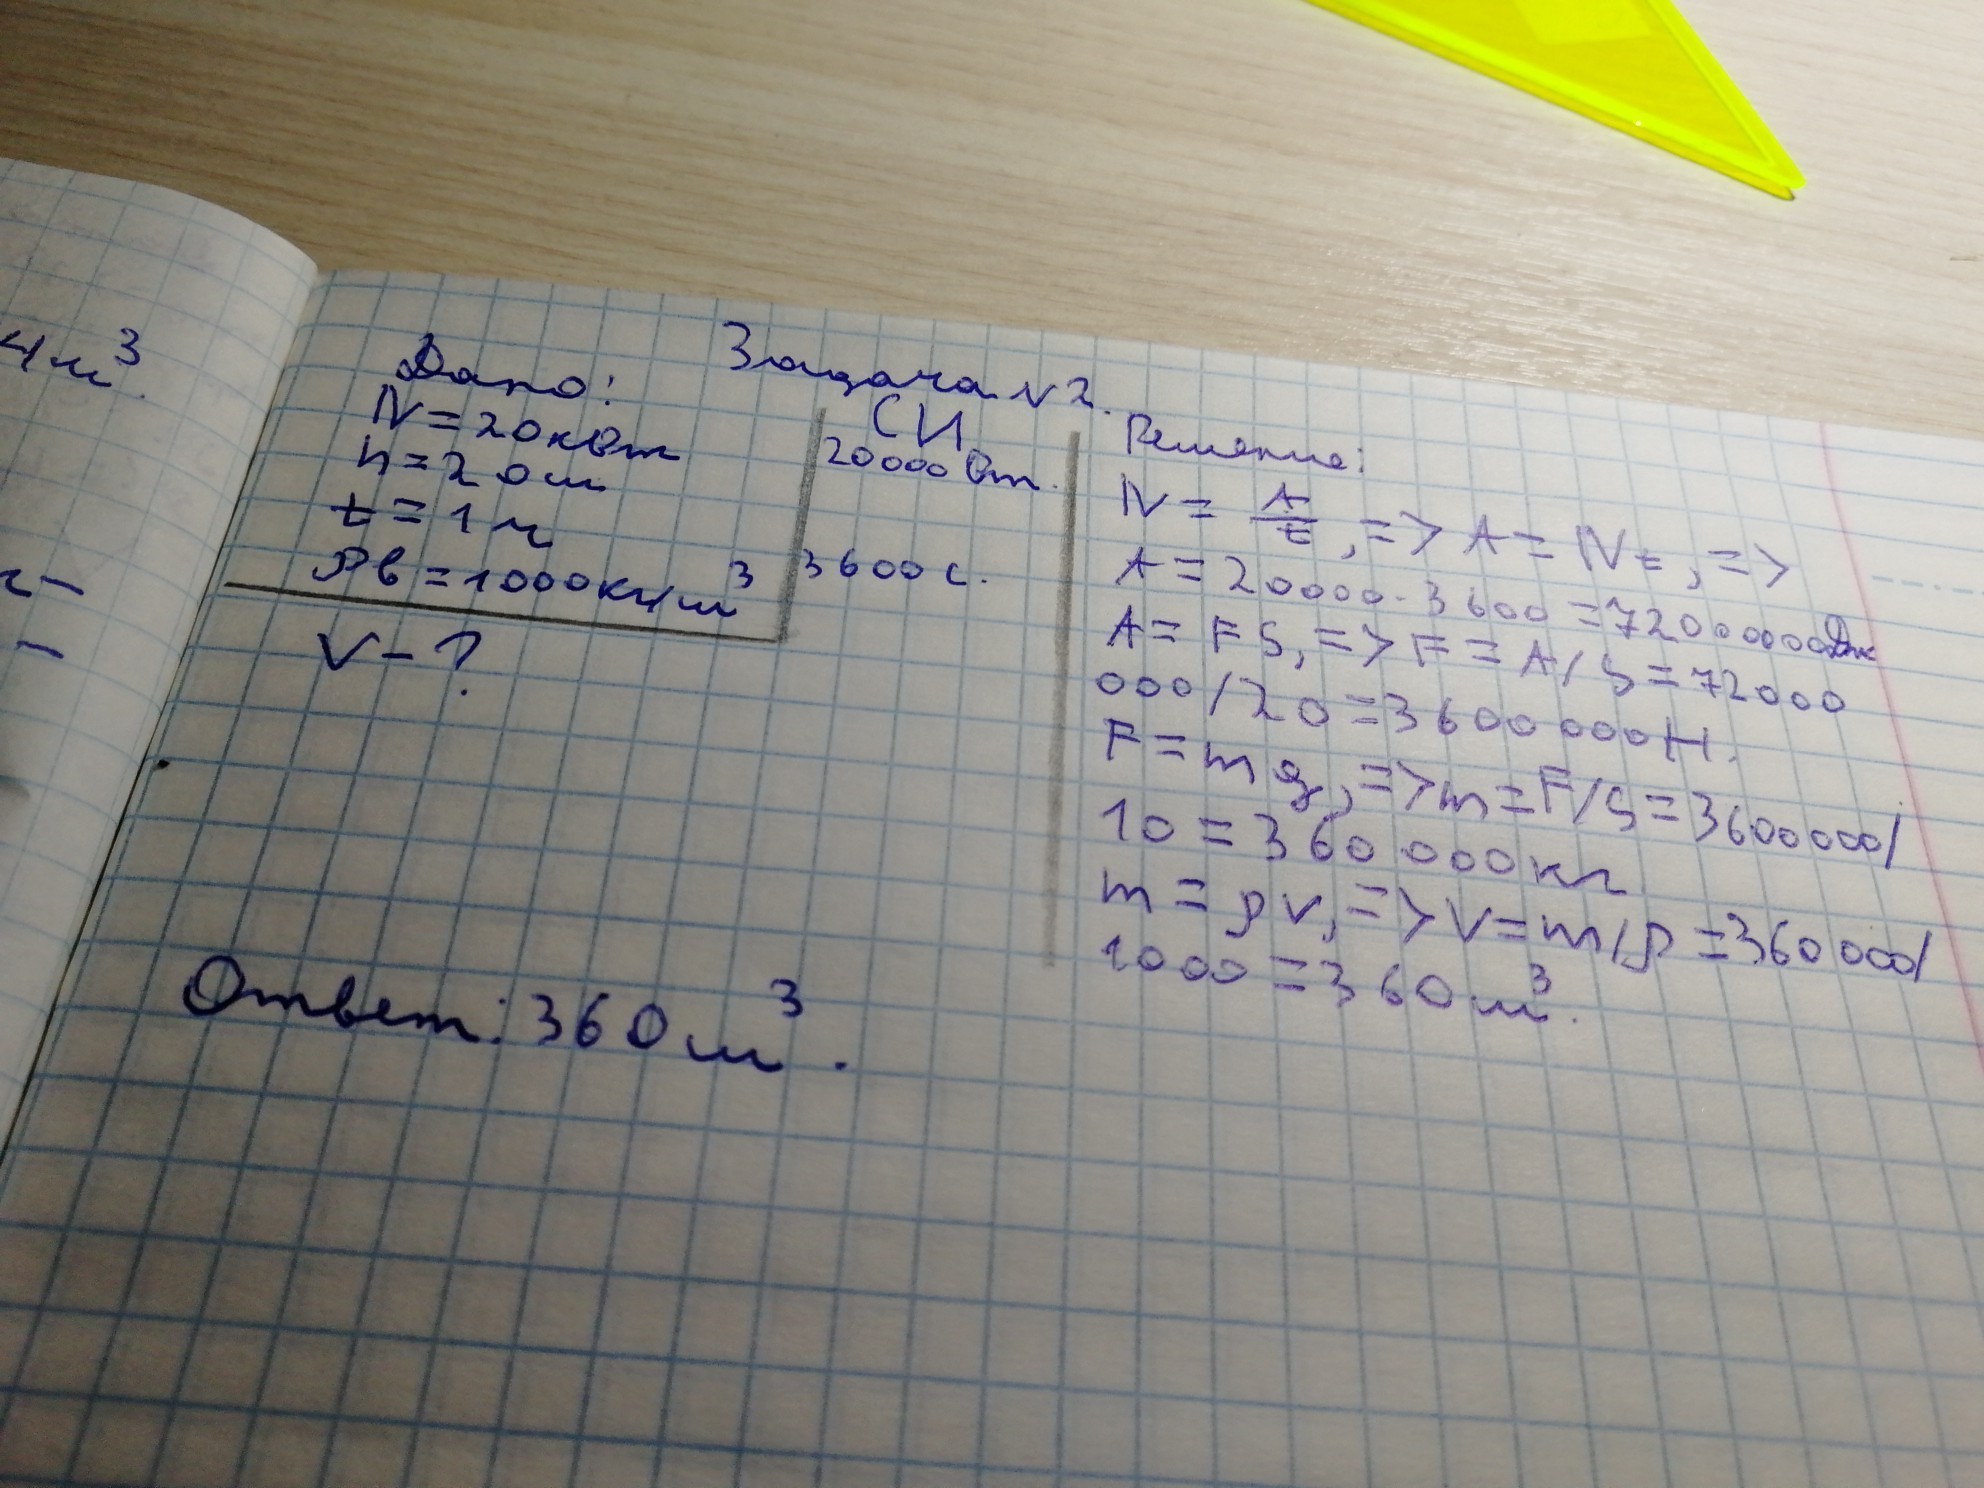 4м³.
г-
-
Задача №2.
Дано:
N=20кВт
h=20м
t=1ч
ρв=1000кг/м³
V-?
СИ
20000Вт.
3600с.
Решение:
N = A/t, => A = Nt, =>
A = 20000·3600=72000000Дж
A = FS, => F = A/S = 72000
000/20=3600000Н.
F = mg, =>m=F/g=3600000/
10=360000кг
m = ρv, => V=m/ρ=360000/
1000=360м³.
Ответ: 360м³.